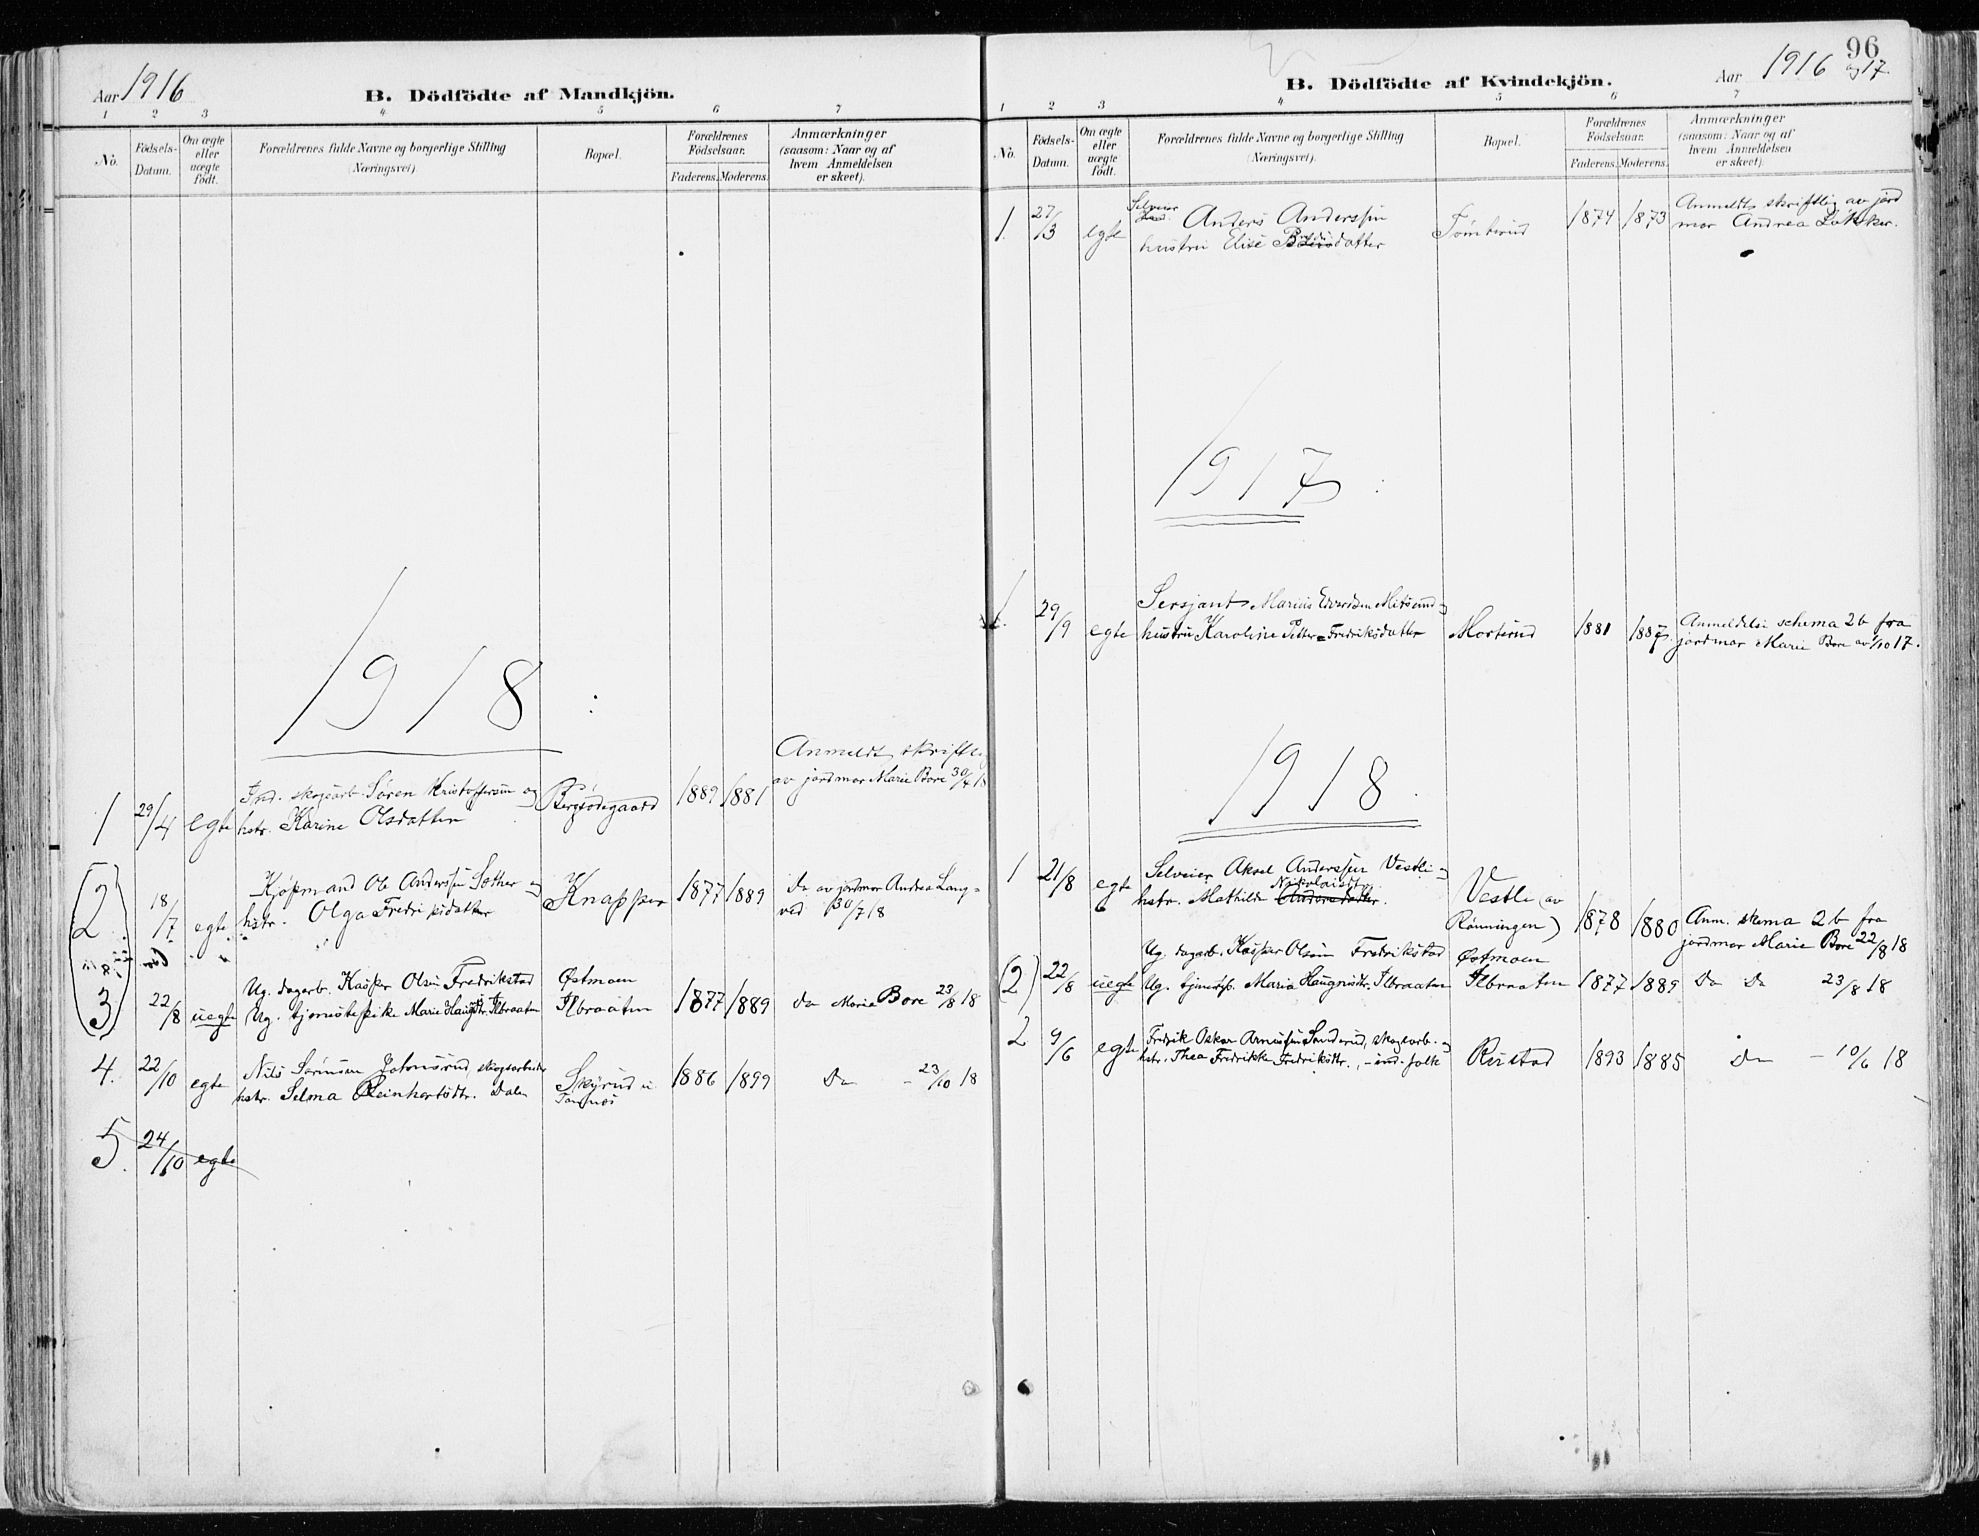 Aar 1916
B. Dödfödte af Mandkjön.
1 2 3 4 5 6 7
No. Födsels-Datum. Om ægte eller uægte födt. Forældrenes fulde Navne og borgerlige Stilling (Næringsvei). Bopæl. Forældrenes Födselsaar. Faderens. Moderens. Anmærkninger (saasom: Naar og af hvem Anmeldelsen er skeet).
1918 :
Anmeldt skriftlig
av jordmor Marie Bore 30/4 18
1 29/4 egte skogsarb. Søren Kristoffersen og Bergsødegaard 1889 1881
hstr. Karine Olsdatter
2 18/7 egte Kjøpmand Ole Anderssen Sæther og Knapper 1877 1889 do av jordmor Andrea Lang-
hstr. Olga Fredriksdatter ved 30/7 18
3 22/8 uegte Ug. dagarb. Kasper Olsen Fredrikstad Østmoen
Ug. tjenestepike Marie Haugnsdtr. Ilbraaten Ilbraaten 1877 1889 do Marie Bore 23/8 18
4. 22/10 egte Nils Sørensen Johnsrud, skogsarbeider
hstr. Selma Reinhertsdtr. Dalen Skyrud i 1886 1899 Do - 23/10 18
5. 24/10 egte
96
Aar 1916 og 17.
B. Dödfödte af Kvindekjön.
1 2 3 4 5 6 7
No. Födsels-Datum. Om ægte eller uægte födt. Forældrenes fulde Navne og borgerlige Stilling (Næringsvei). Bopæl. Forældrenes Födselsaar. Faderens. Moderens. Anmærkninger (saasom: Naar og af hvem Anmeldelsen er skeet).
1. 27/3 egte Selveier Anders Anderssen Tømterud 1874 1873 Anmeldt skriftlig av jord
hustru Elise mor Andrea
1917 :
1. 29/9 egte Sersjant Marius Edvardsen Mitsund og
hustru Karoline Petter= Fredriksdatter Morterud 1881 Anmeldelse schema 2b fra
jordmor Marie Bore av 1/10 17.
1918.
1 21/8 egte Selveier Aksel Anderssen Vestli og
hstr. Mathilde Nikolaisdtr. Andersdatter. Vestli (av
Rønningen) 1878 1880 Anm. skema 2b fra
jordmor Marie Bore 22/8 18
(2) 22/8 uegte Ug. dagarb. Kasper Olsen Fredrikstad Østmoen
Ug. tjenestep. Marie Haugnsdtr. Ilbraaten Ilbraaten 1877 1889 Do Do 23/8 18
2 9/6 egte Fredrik Oskar Arnessen Sanderud, skogsarb. og
hstr. Thea Fredrikke Fredriksdtr. - ind. folk Rustad 1893 1885 Do - 10/6 18